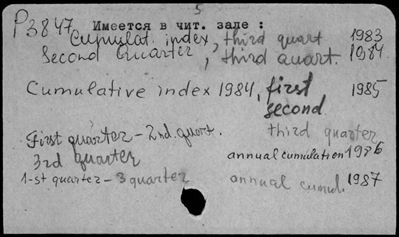 5
P3847 Имеется в чит. зале :
Cumulat. index, third quart 1983
Second Quarter, third quart. 1984
Cumulative index 1984, first 1985
second
third quarter
First quarter – 2nd. quart.
3rd quarter annual cumulation 1986
1-st quarter – 3 quarter annual cumul. 1987